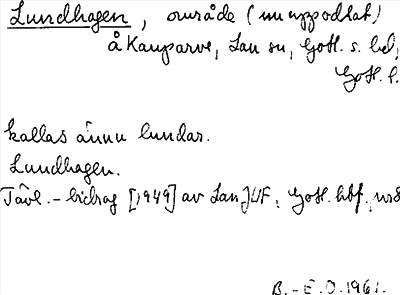 Lundhagen, område (nu uppodlat)
å Kauparve, Lau sn, Gotl. s. hd,
Gotl. l.
kallas ännu lundar.
Lundhagen.
Tävl.-bidrag [1949] av Lau JUF, Gotl. hbf, nr8
B.-E.O. 1961.